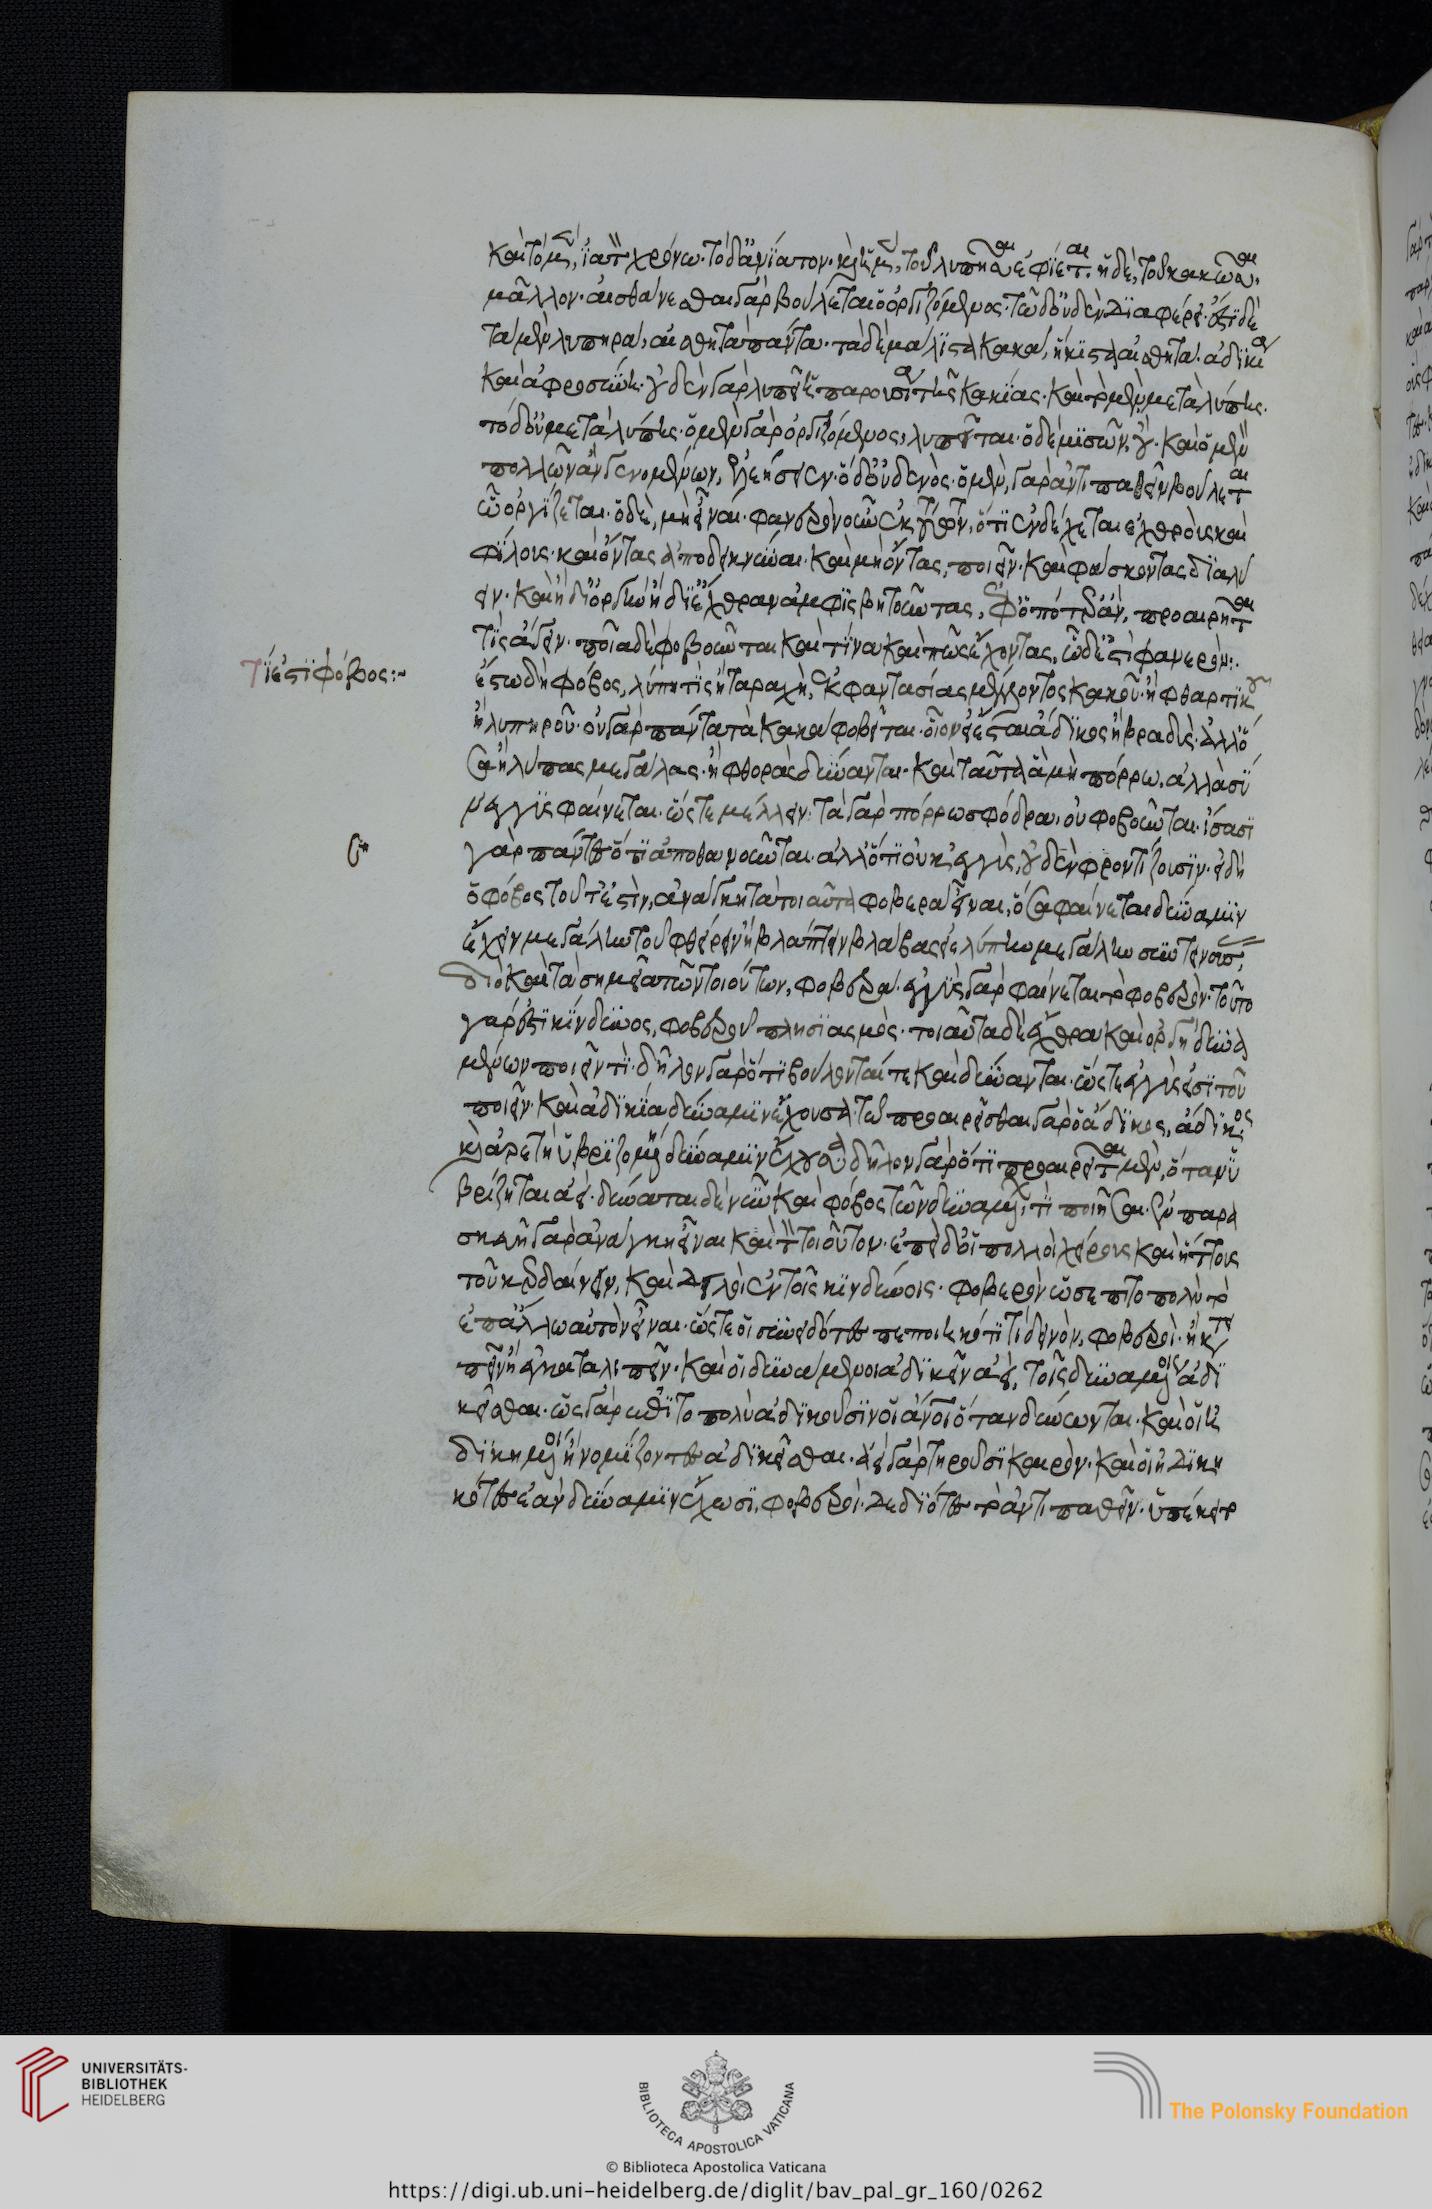 καὶ τὸ μὲν, ἰατὸν χρόνω· τὸ δ' ἀνίατον· καὶ ἡ μὲν, τοῦ λυπῆσαι ἐφίεται· ἡ δὲ, τοῦ κακῶσαι·
μᾶλλον· αἰσθάνεσθαι γὰρ βούλεται ὁ ὀργιζόμενος· τῶ δ' οὐδὲν διαφέρει· ἔστι δὲ
τὰ μὲν λυπηρὰ, αἰσθητὰ πάντα· τὰ δὲ μάλιστα κακὰ, ἥκιστα αἰσθητά· ἀδικία
καὶ ἀφροσύνη· οὐδὲν γὰρ λυπεῖ ἡ παρουσία τῆς κακίας· καὶ τὸ μὲν, μετὰ λύπης·
τὸ δ' οὐ μετὰ λύπης· ὁ μὲν γὰρ ὀργιζόμενος, λυπεῖται· ὁ δὲ μισῶν, οὔ· καὶ ὁ μὲν
πολλῶν ἂν γενομένων, ἐλεήσειεν· ὁ δ' οὐδενός· ὁ μὲν, γὰρ ἀντιπαθεῖν βούλεται
ὧ ὀργίζεται· ὁ δὲ, μὴ εἶναι· φανερὸν οὖν ἐκ τούτων, ὅτι ἐνδέχεται ἐχθροὺς καὶ
φίλους· καὶ ὄντας ἀποδεικνύναι· καὶ μὴ ὄντας, ποιεῖν· καὶ φάσκοντας διαλύ
ειν· καὶ ἢ δι' ὀργὴν ἢ δι' ἔχθραν ἀμφισβητοῦντας, ἐφ' ὁπότερ' ἂν, προαιρῆται
τις ἄγειν· ποῖα δὲ φοβοῦνται καὶ τίνα καὶ πῶς ἔχοντας, ὧδ' ἐστὶ φανερόν:·
τί ἐστι φόβος:~
ἔστω δὴ φόβος, λύπη τις ἢ ταραχὴ, ἐκ φαντασίας μέλλοντος κακοῦ· ἢ φθαρτικοῦ
ἢ λυπηροῦ· οὐ γὰρ πάντα τὰ κακὰ φοβεῖται· οἷον εἰ ἔσται ἄδικος ἢ βραδύς· ἀλλ' ὅ
σα ἢ λύπας μεγάλας· ἢ φθορὰς δύνανται· καὶ ταῦτα ἐὰν μὴ πόρρω· ἀλλὰ σύ
νεγγυς φαίνεται· ὥστε μέλλειν· τὰ γὰρ πόρρω σφόδρα, οὐ φοβοῦνται· ἴσασι
γὰρ πάντες ὅτι ἀποθανοῦνται· ἀλλ' ὅτι οὐκ ἐγγὺς, οὐδὲν φροντίζουσιν· εἰ δὴ
ὁ φόβος τοῦτ' ἐστὶν, ἀνάγκη τὰ τοιαῦτα φοβερὰ εἶναι, ὅσα φαίνεται δύναμιν
ἔχειν μεγάλην τοῦ φθείρειν ἢ βλάπτειν βλάβας εἰς λύπην μεγάλην συντεινούσας,
διὸ καὶ τὰ σημεῖα τῶν τοιούτων, φοβερά· ἐγγὺς γὰρ φαίνεται τὸ φοβερόν· τοῦτο
γάρ ἐστι κίνδυνος, φοβεροῦ πλησιασμός· τοιαῦτα δὲ ἔχθρα καὶ ὀργὴ δυνα
μένων ποιεῖν τι· δῆλον γὰρ ὅτι βούλονταί τε καὶ δύνανται· ὥστε ἐγγύς εἰσι τοῦ
ποιεῖν· καὶ ἀδικία δύναμιν ἔχουσα· τῶ προαιρεῖσθαι γὰρ ὁ ἄδικος, ἄδικος
καὶ ἀρετὴ ὑβριζομένη δύναμιν ἔχουσα· δῆλον γὰρ ὅτι προαιρεῖται μὲν, ὅταν ὑ
βρίζηται ἀεί· δύναται δὲ νῦν· καὶ φόβος τῶν δυναμένων, τι ποιῆσαι· ἐν παρα
σκευῆ γὰρ ἀνάγκη εἶναι καὶ τὸν τοιοῦτον· ἐπεὶ δ' οἱ πολλοὶ χείρους καὶ ἥττους
τοῦ κερδαίνειν, καὶ δειλοὶ ἐν τοῖς κινδύνοις· φοβερὸν ὡς ἐπιτοπολὺ τὸ
ἐπ' ἄλλω αὐτὸν εἶναι· ὥστε οἱ συνειδότες πεποιηκότι τι δεινὸν, φοβεροί· ἢ κατει
πεῖν ἢ ἐγκαταλιπεῖν· καὶ οἱ δυνάμενοι ἀδικεῖν ἀεὶ, τοῖς δυναμένοις ἀδι
κεῖσθαι· ὡς γὰρ ἐπὶ τὸ πολὺ ἀδικοῦσιν οἱ ἄνθρωποι ὅταν δύνωνται· καὶ οἱ ἠ
δικημένοι ἢ νομίζοντες ἀδικεῖσθαι· ἀεὶ γὰρ τηροῦσι καιρόν· καὶ οἱ ἠδικη
κότες ἐὰν δύναμιν ἔχωσι, φοβεροί· δεδιότες τὸ ἀντιπαθεῖν· ὑπέκειτο
UNIVERSITÄTS-
BIBLIOTHEK
HEIDELBERG
BIBLIOTECA APOSTOLICA VATICANA
The Polonsky Foundation
© Biblioteca Apostolica Vaticana
https://digi.ub.uni-heidelberg.de/diglit/bav_pal_gr_160/0262